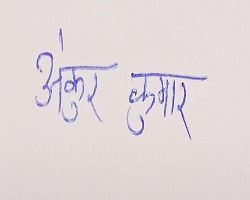 अंकुर कुमार